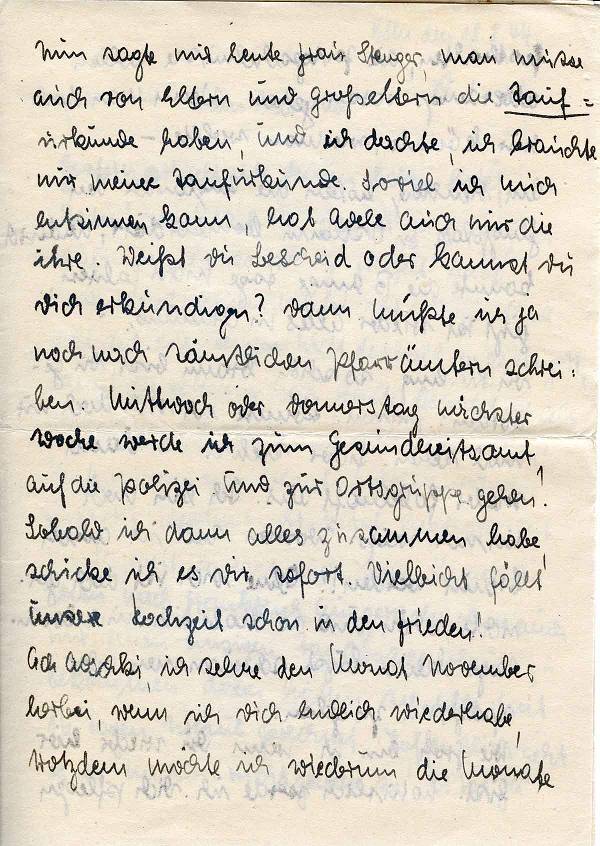 Nun sagte mir heute Frau Stenger, man müsse
auch von Eltern und Großeltern die Tauf=
urkunde haben, und ich dachte, ich brauchte
nur meine Taufurkunde. Soviel ich mich
entsinnen kann, hat Adele auch nur die
ihre. Weißt du Bescheid oder kannst du
dich erkundigen? Dann müßte ich ja
noch nach sämtlichen Pfarrämtern schrei-
ben. Mittwoch oder Donnerstag nächster
Woche werde ich zum Gesundheitsamt,
auf die Polizei und zur Ortsgruppe gehen!
Sobald ich dann alles zusammen habe,
schicke ich es dir sofort. Vielleicht fällt
unsere Hochzeit schon in den Frieden!
Ach, ich sehne den Monat November
herbei, wenn ich dich endlich wiederhabe,
trotzdem möchte ich wiederum die Monate